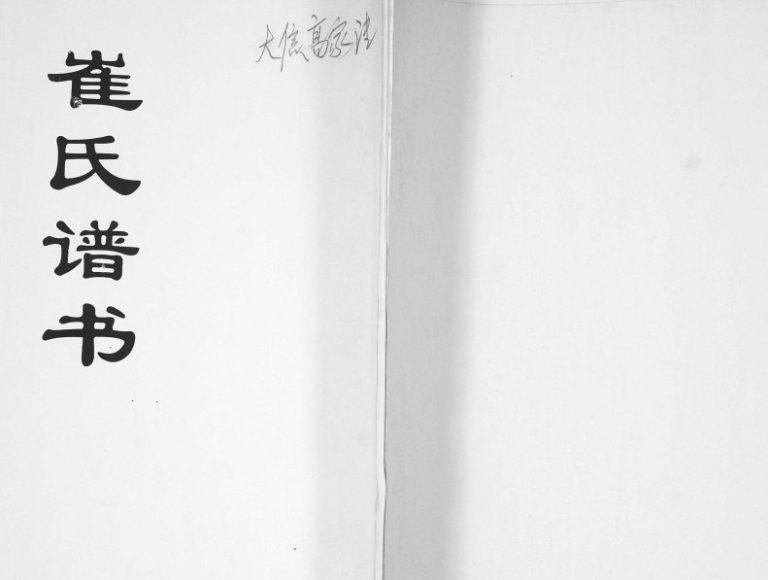 崔氏谱书
大信高家洼